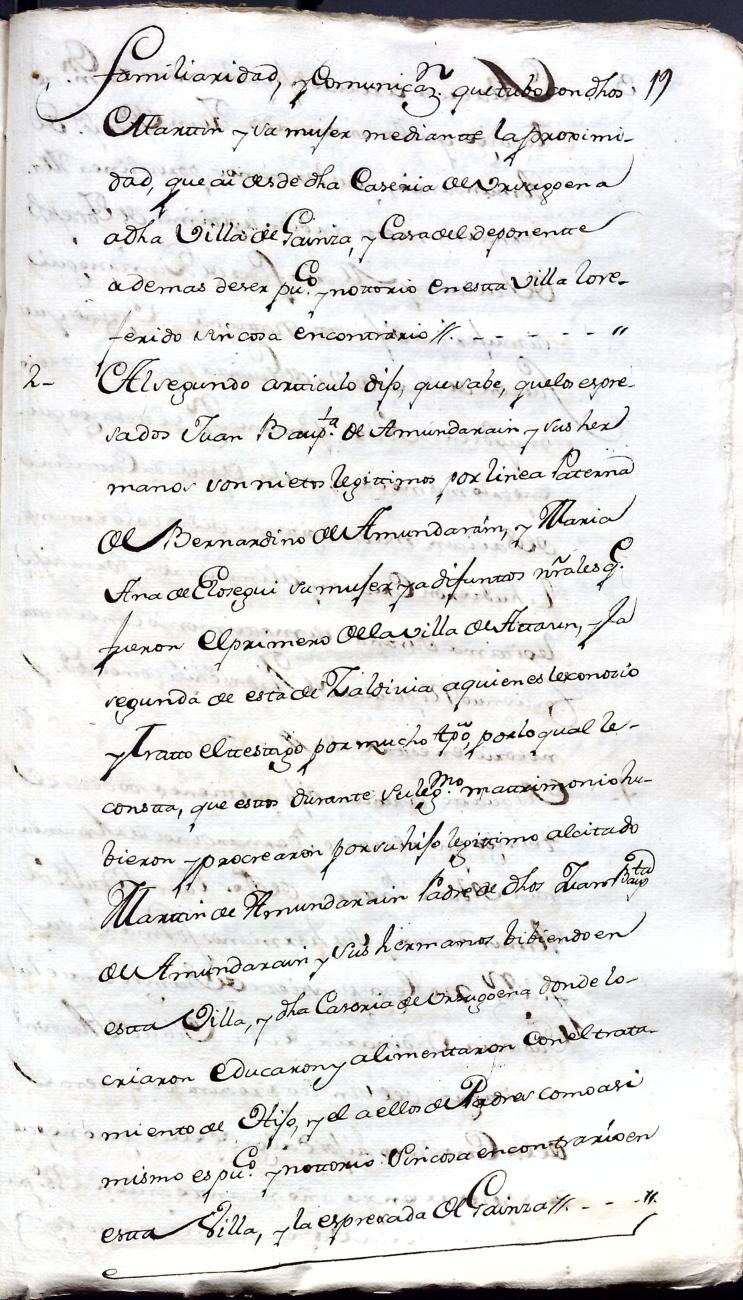 familiaridad, y Comunicaz.n que tubo con dhos 19
Marttin y su muger mediantte la proximi-
dad, que ai desde dha Caseria de Ursugoena
a dha Villa de Gainza, y Casa del deponentte
ademas de ser pu.co y nottorio en estta Villa lo re-
ferido sin cosa en contrario //. - - - - - "
2- Al segundo artticulo dijo, que sabe, que los espre-
sados Juan Baup.ta de Amundarain y sus her
manos son nietos legittimos por linea Paterna
de Bernardino de Amundarain, y Maria
Ana de Elosegui su muger ya difuntos n~rales q.e
fueron el primero de la villa de Attaun, y la
segunda de esta de Zaldivia a quienes les conozio
y Tratto el ttesttigo por mucho tpo, por lo qual le-
constta, que esttos durante su leg.mo mattrimonio hu-
bieron y procrearon por su hijo legittimo al citado
Marttin de Amundarain Padre de dhos Juan Baup.ta
de Amundarain y sus hermanos bibiendo en
estta Villa, y dha Caseria de Ursugoena donde lo-
criaron educaron y alimentaron con el trata-
miento de Hijo, y el a ellos de Padres como asi
mismo es pu.co y nottorio sin cosa en contrario en
estta Villa, y la espresada de Gainza //. - - - //.